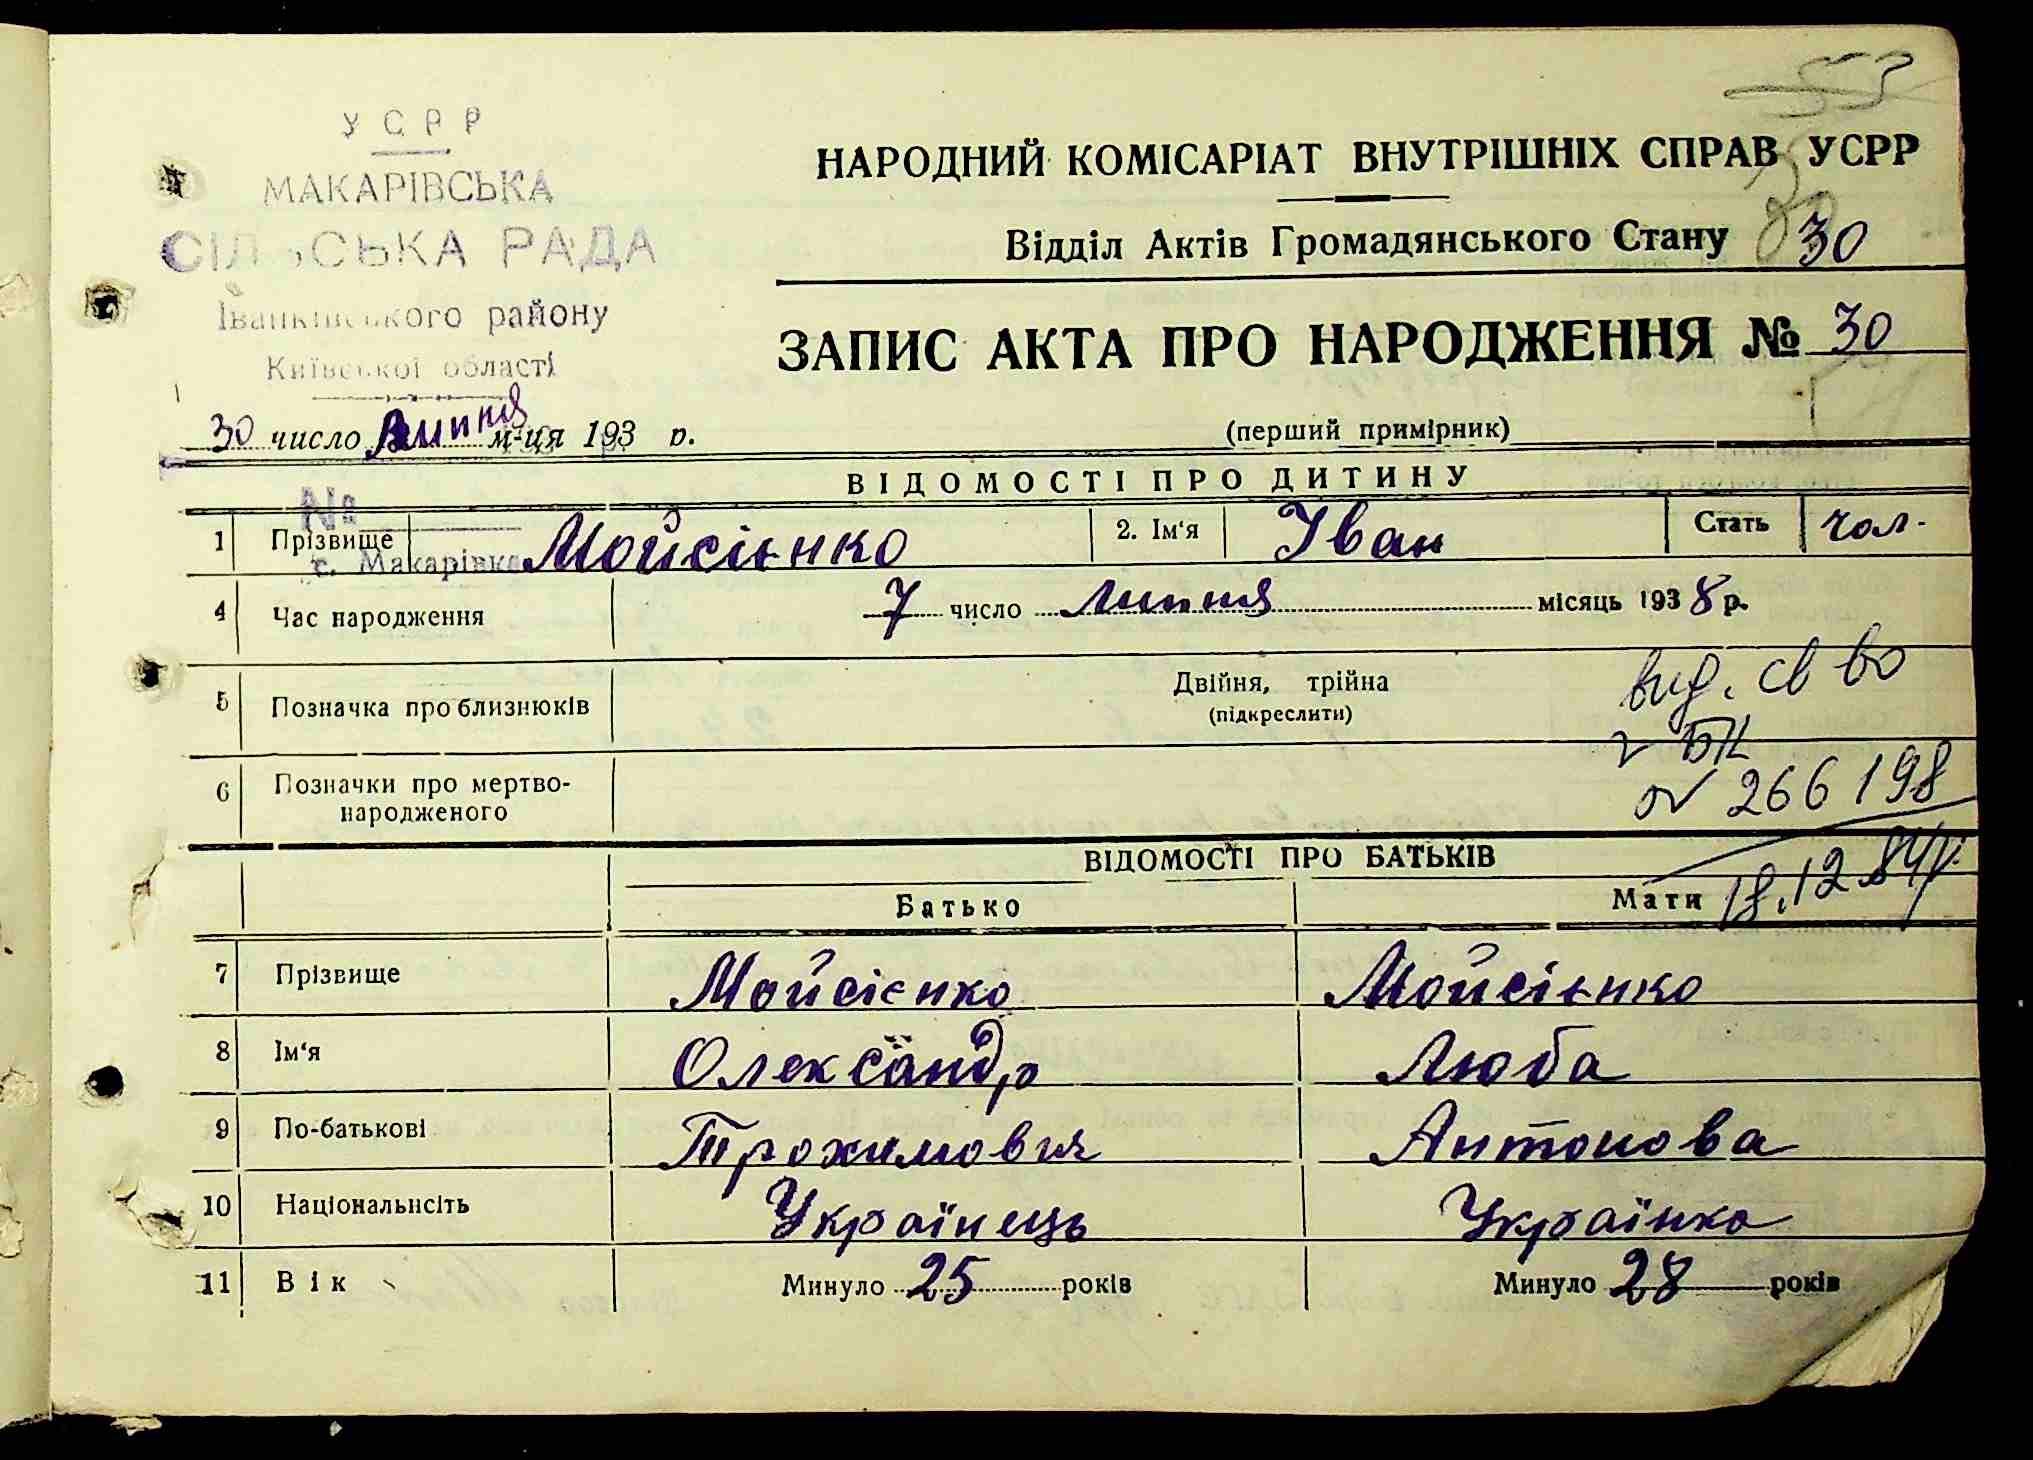 У С Р Р
МАКАРІВСЬКА
СІЛЬСЬКА РАДА
Іванківського району
Київської області
30 число липня м-ця 193 р.
№
с. Макарівка
53
НАРОДНИЙ КОМІСАРІАТ ВНУТРІШНІХ СПРАВ УСРР
Відділ Актів Громадянського Стану 30
ЗАПИС АКТА ПРО НАРОДЖЕННЯ № 30
(перший примірник)
ВІДОМОСТІ ПРО ДИТИНУ
1 Прізвище Мойсієнко 2. Ім'я Іван Стать чол.
4 Час народження 7 число липня місяць 1938 р.
5 Позначка про близнюків Двійня, трійна
(підкреслити)
вид. св во
БК
6 Позначки про мертво-
народженого
№ 266198
18.12.84р.
ВІДОМОСТІ ПРО БАТЬКІВ
Батько Мати
7 Прізвище Мойсієнко Мойсієнко
8 Ім'я Олександр Люба
9 По-батькові Трохимович Антонова
10 Національнсіть Українець Українка
11 Вік Минуло 25 років Минуло 28 років